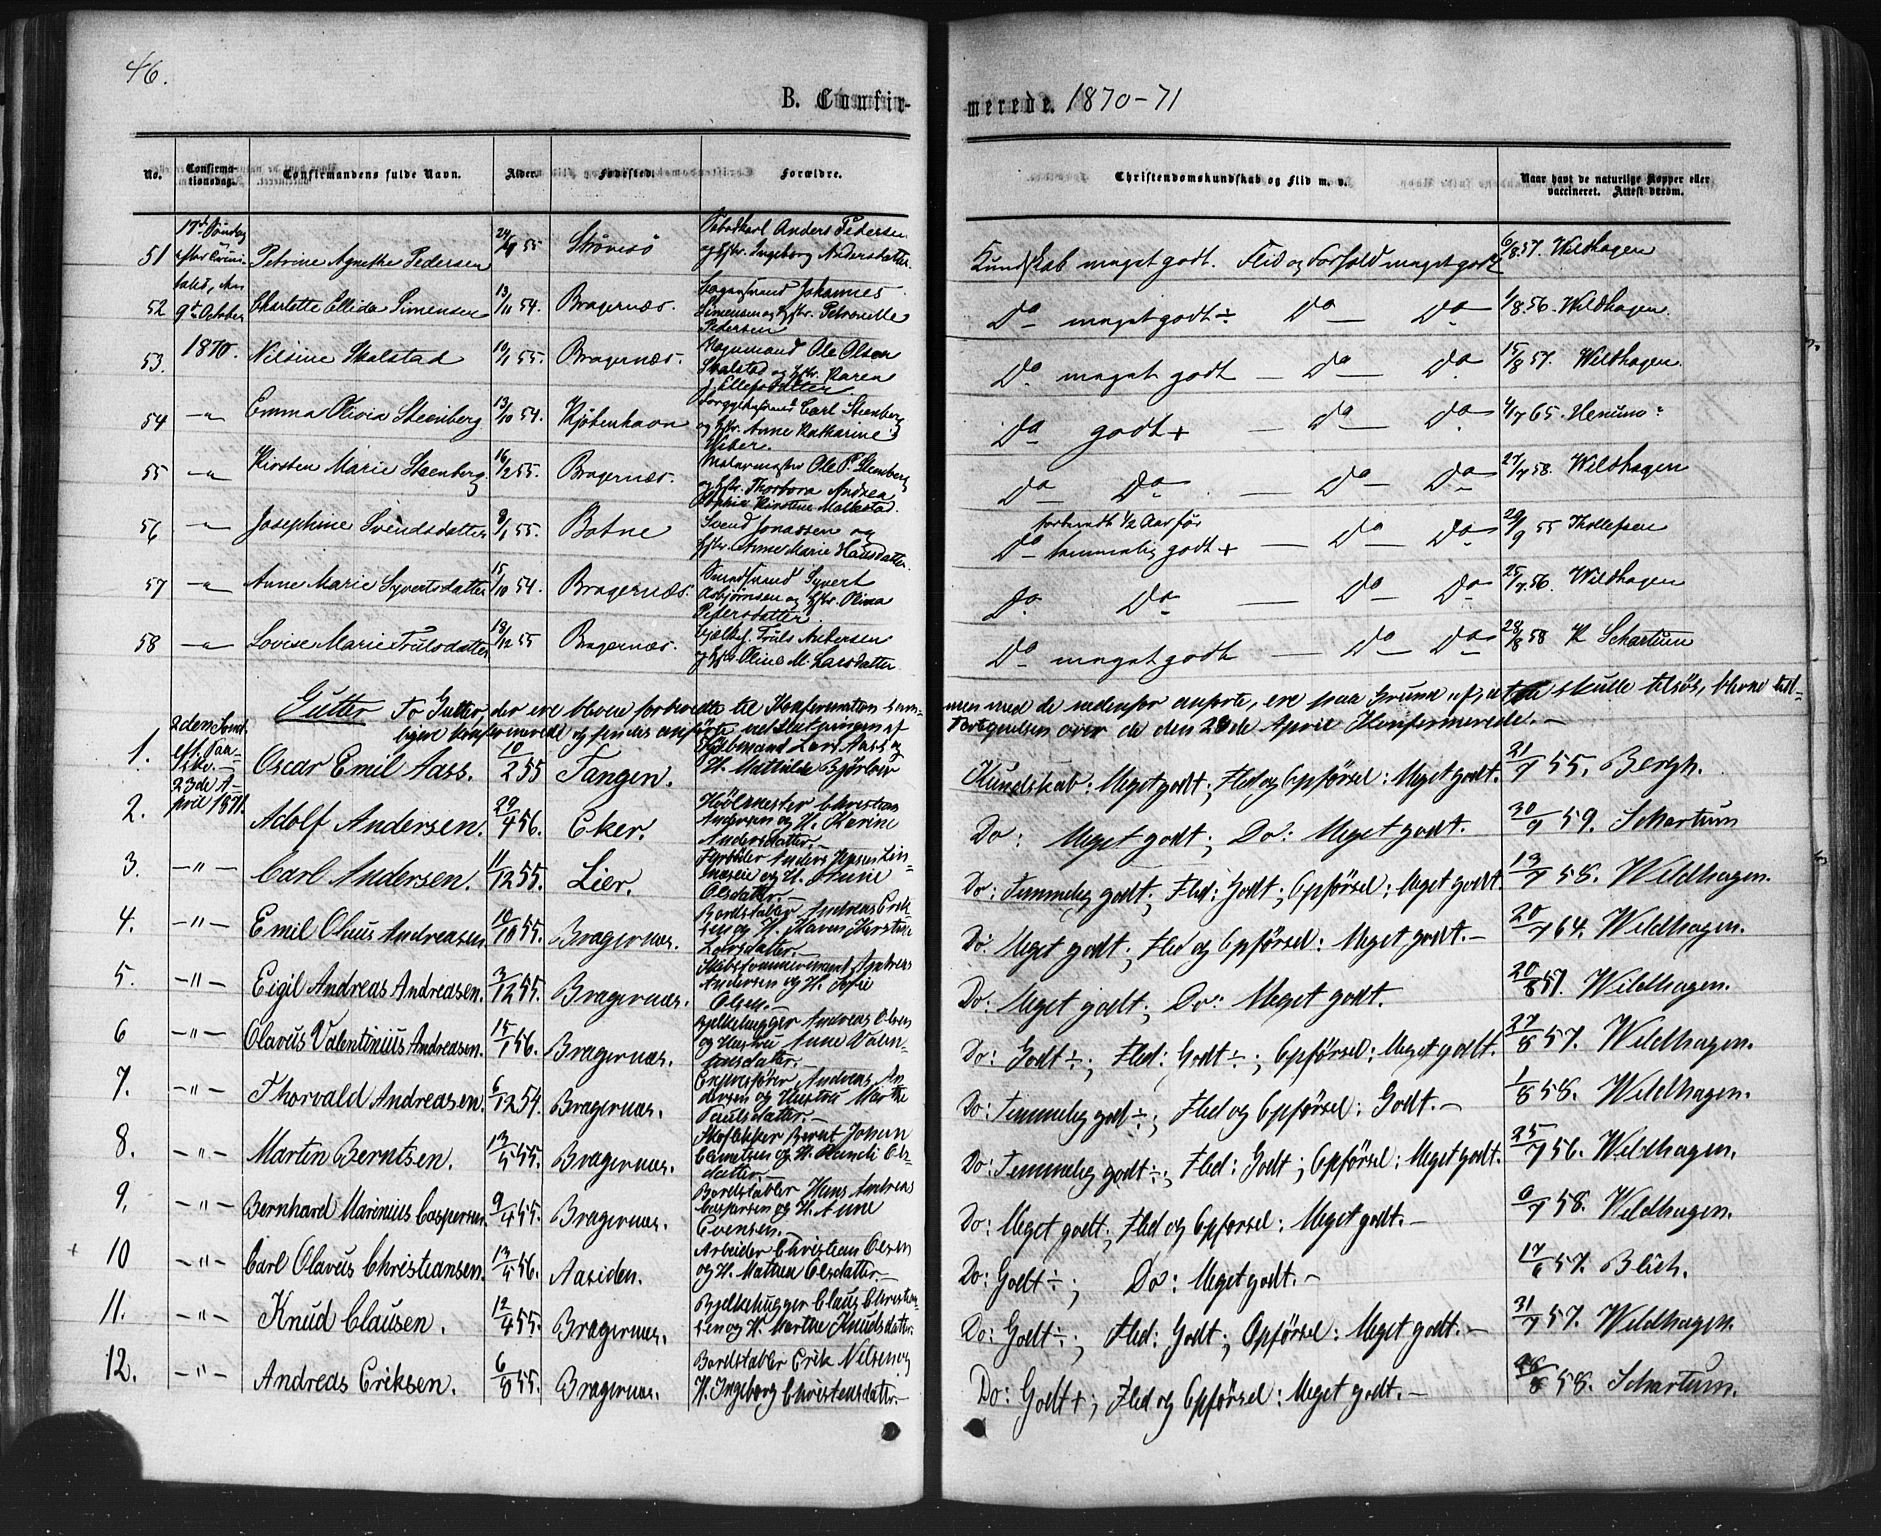 46.
B. Confirmerede. 1870-71
No. Confirmationsdag. Confirmandens fulde Navn. Alder. Fødested. Forældre. Christendomskundskab og Flid m. v. Naar havt de naturlige Kopper eller vaccineret. Attest derom.
17de Søndag efter Trinitatis, den 9de October 1870.
51 Petrine Agnethe Pedersen 55 Strømsø Anders Pedersen og Hstr. Ingeborg Andersdatter. Kundskab meget godt. Flid og Forhold meget godt 6/8 57. Wildhagen
52 Charlotte Ellida Simensen 13/11 54. Bragernæs. Johannes Simensen og Hstr. Petronelle Pedersen Do meget godt÷ Do Do 1/8 56. Wildhagen.
53. Nilsine Skalstad 10/1 55. Bragernæs. Ole Olsen Skalstad og Hstr. Karen J. Ellefsdatter Do meget godt — Do Do 15/8 57. Wildhagen.
54 —"— Emma Olivia Steenberg 13/10 54. Kjøbenhavn Carl Steenberg og Hstr. Anne Katharine Weber. Do godt+ — Do Do 4/7 65. Henum
55 —"— Kirsten Marie Steenberg 16/2 55. Bragernæs. Malermester Ole P. Steenberg og Hstr. Thorbora Andrea Sophie Kirstine Malkestad. Do Do — Do Do 27/7 58. Wildhagen
56 —"— Josephine Svendsdatter 8/1 55. Botne Svend Jonassen og Hstr. Anne Marie Hansdatter. forberedt 1/2 Aar før Do temmelig godt+ — Do Do 29/9 55 Thollefsen
57 —"— Anne Marie Syvertsdatter 15/10 54. Bragernæs. Syvert Asbjørnsen og Hstr. Olina Pedersdatter Do Do — Do Do 25/7 56. Wildhagen
58 —"— Lovise Marie Trulsdatter 18/12 55 Bragernæs. Truls Andersen og Hstr. Oline M. Larsdatter. Do meget godt — Do Do 28/8 58 K Schartum
Gutter To Gutter, der ere blevne forberedte til Konfirmation sammen med de nedenfor anførte, ere paa Grund af, at de skulle tilsøs, blevne tidligere konfirmerede og findes anførte ved Slutningen af Fortegnelsen over de den 23de April Konfirmerede.—
2den Sønd. eft. Paaske.— 23de April 1871.
1. Oscar Emil Aass. 10/2 55 Tangen. Lars Aass og H. Mathilde Bjørløw Kundskab: Meget godt; Flid og Opførsel: Meget godt. 21/7 55. Bergh.
2. Adolf Andersen. 29/4 56. Eker. Christian Andersen og H. Karine Andersdatter.— Do: Meget godt; Do: Meget godt. 30/9 59. Schartum
3. —"— Carl Andersen. 11/12 55. Lier. Fyrbøder Anders og H. Anne Olsdatter.— Do: Temmelig godt; Flid: Godt; Opførsel: Meget godt. 13/7 58. Wildhagen.
4. —"— Emil Olaus Andreasen 10/10 55. Bragernæs. Bordstabler Andreas Eriksen og H. Maren Kirstine Larsdatter.— Do: Meget godt; Flid og Opførsel: Meget godt.— 20/7 64. Wildhagen.
5. —"— Eigil Andreas Andreasen. 3/12 55. Bragernæs. Skibstømmermand Andreas Andersen og H. Sofie Olsen.— Do: Meget godt; Do: Meget godt. 20/8 57. Wildhagen.
6 —"— Olavus Valentinius Andreasen. 15/1 56. Bragernæs. Bjelkehugger Andreas Olsen og Hustru Anne Valentinsdatter.— Do: Godt÷; Flid: Godt÷; Opførsel: Meget godt. 27/8 57. Wildhagen.
7. —"— Thorvald Andreasen. 6/12 54. Bragernæs. Andreas Andersen og Hustru Marthe Paulsdatter.— Do: Temmelig godt÷; Flid og Opførsel: Godt.— 1/8 58. Wildhagen.
8. —"— Martin Berntsen. 13/5 55. Bragernæs. Skoflikker Bernt Johan og H. Randi Olsdatter.— Do: Temmelig godt÷; Flid: Godt; Opførsel: Meget godt. 25/7 56. Wildhagen.
9. —"— Bernhard Marinius Caspersen 9/4 55. Bragernæs. Bordstabler Hans Andreas Caspersen og H. Anne Evensen.— Do: Meget godt; Flid og Opførsel: Meget godt.— 6/7 58. Wildhagen.
10 —"— Carl Olavus Christiansen. 13/5 56. Aasiden. Arbeider Christian Olsen og H. Mathea Olsdatter.— Do: Godt÷; Do: Meget godt.— 17/6 57. Blich.
11. —"— Knud Clausen. 12/4 55. Bragernæs. Bjelkehugger Claus Christensen og H. Marthe Knudsdatter. Do: Godt÷; Flid: Godt; Opførsel: Meget godt.— 31/7 57. Wildhagen
12. —"— Andreas Eriksen. 6/8 55. Bragernæs. Bordstabler Erik Nilsen og H. Ingeborg Christensdatter. Do: Godt+; Flid og Opførsel: Meget godt.— 58. Schartum.